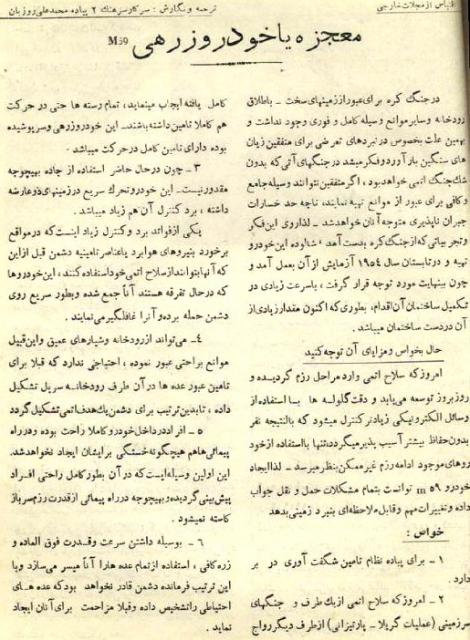 اقتباس از مجلات خارجی
ترجمه و نگارش : سرکار سرهنگ ۲ پیاده محمدعلی روزبان
معجزه یا خودرو زرهی M59
در جنگ کره برای عبور از زمینهای سخت - باطلاق
رودخانه و سایر موانع وسیله کامل و فوری وجود نداشت و
بهمین علت بخصوص در نبردهای تعرضی برای متفقین زیان
های سنگین ببار آورد و فکر میشد در جنگهای آتی که بدون
شک جنگ اتمی خواهد بود ، اگر متفقین نتوانند وسیله جامع
و کافی برای عبور از موانع تهیه نمایند، تاچه حد خسارات
جبران ناپذیری متوجه آنان خواهد شد - لذا روی این فکر
و تجربیاتی که از جنگ کره بدست آمد ، شالوده این خودرو
تهیه و در تابستان سال ۱۹۵٤ آزمایش از آن بعمل آمد و
چون بینهایت مورد توجه قرار گرفت ، با سرعت زیادی در
تکمیل ساختمان آن اقدام، بطوری که اکنون مقدار زیادی از
آن در دست ساختمان میباشد .
حال بخواص و مزایای آن توجه کنید
امروز که سلاح اتمی وارد مراحل رزم گردیده و
روزبروز توسعه می‌یابد و دقت گلوله ها با استفاده از
وسائل الکترونیکی زیادتر کنترل میشود که بالنتیجه نفر
بدون حفاظ بیشتر آسیب پذیر میگردد، تنها با استفاده از خود
روهای موجود ادامه رزم غیر ممکن بنظر میرسد - لذا ایجاد
خودرو m ۵۹ توانست بتمام مشکلات حمل و نقل جواب
داده و تغییرات مهم و قابل ملاحظه‌ای بنبرد زمینی بدهد
خواص :
۱ - برای پیاده نظام تامین شگفت آوری در بر
دارد .
۲ - امروز که سلاح اتمی از یک طرف و جنگهای
سرزمینی (عملیات گریلا - پارتیزانی) از طرف دیگر رواج
کامل یافته ایجاب مینماید، تمام رسته ها حتی در حرکت
هم کاملا تامین داشته باشند- این خودرو زرهی و سرپوشیده
بوده دارای تامین کامل در حرکت میباشد .
۳ - چون در حال حاضر استفاده از جاده بهیچوجه
مقدور نیست- این خودرو تحرک سریع در زمینهای ذوعارضه
داشته ، برد کنترل آن هم زیاد میباشد .
یکی از فوائد برد و کنترل زیاد اینست که در مواقع
برخورد بنیروهای هوابرد یا عناصر تامینیه دشمن قبل از این
که آنها بتوانند از سلاح اتمی خود استفاده کنند ، این خودروها
که در حال تفرقه هستند آناً جمع شده و بطور سریع روی
دشمن حمله برده و آنرا غافلگیر می‌نمایند .
٤ - می تواند از رودخانه و شیارهای عمیق و این قبیل
موانع براحتی عبور نموده ، احتیاجی ندارد که قبلا برای
تامین عبور عده ها در آن طرف رودخانه سر پل تشکیل
داده ، تا بدین ترتیب برای دشمن یک هدف اتمی تشکیل گردد
۵ - افراد در داخل خودرو کاملا راحت بوده و در راه
پیمائی‌ها هم هیچگونه خستگی برایشان ایجاد نخواهد شد.
این اولین وسیله‌ایست که در آن بطور کامل راحتی افراد
پیش بینی گردیده و بهیچوجه در راه پیمائی از قدرت رزم سرباز
کاسته نمیشود .
٦ - بوسیله داشتن سرعت و قدرت فوق العاده و
زره کافی ، استفاده از تمام عده ها را آناً میسر می‌سازد و با
این ترتیب فرمانده دشمن قادر نخواهد بود که عده های
احتیاطی را تشخیص داده و قبلا مزاحمت برای آنان ایجاد
نماید .